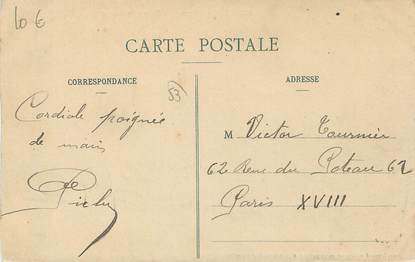 10 €
CARTE POSTALE
CORRESPONDANCE
53
ADRESSE
Cordiale poignée
de main
M Victor Tournier
62 Rue du Poteau 62
Paris XVIII